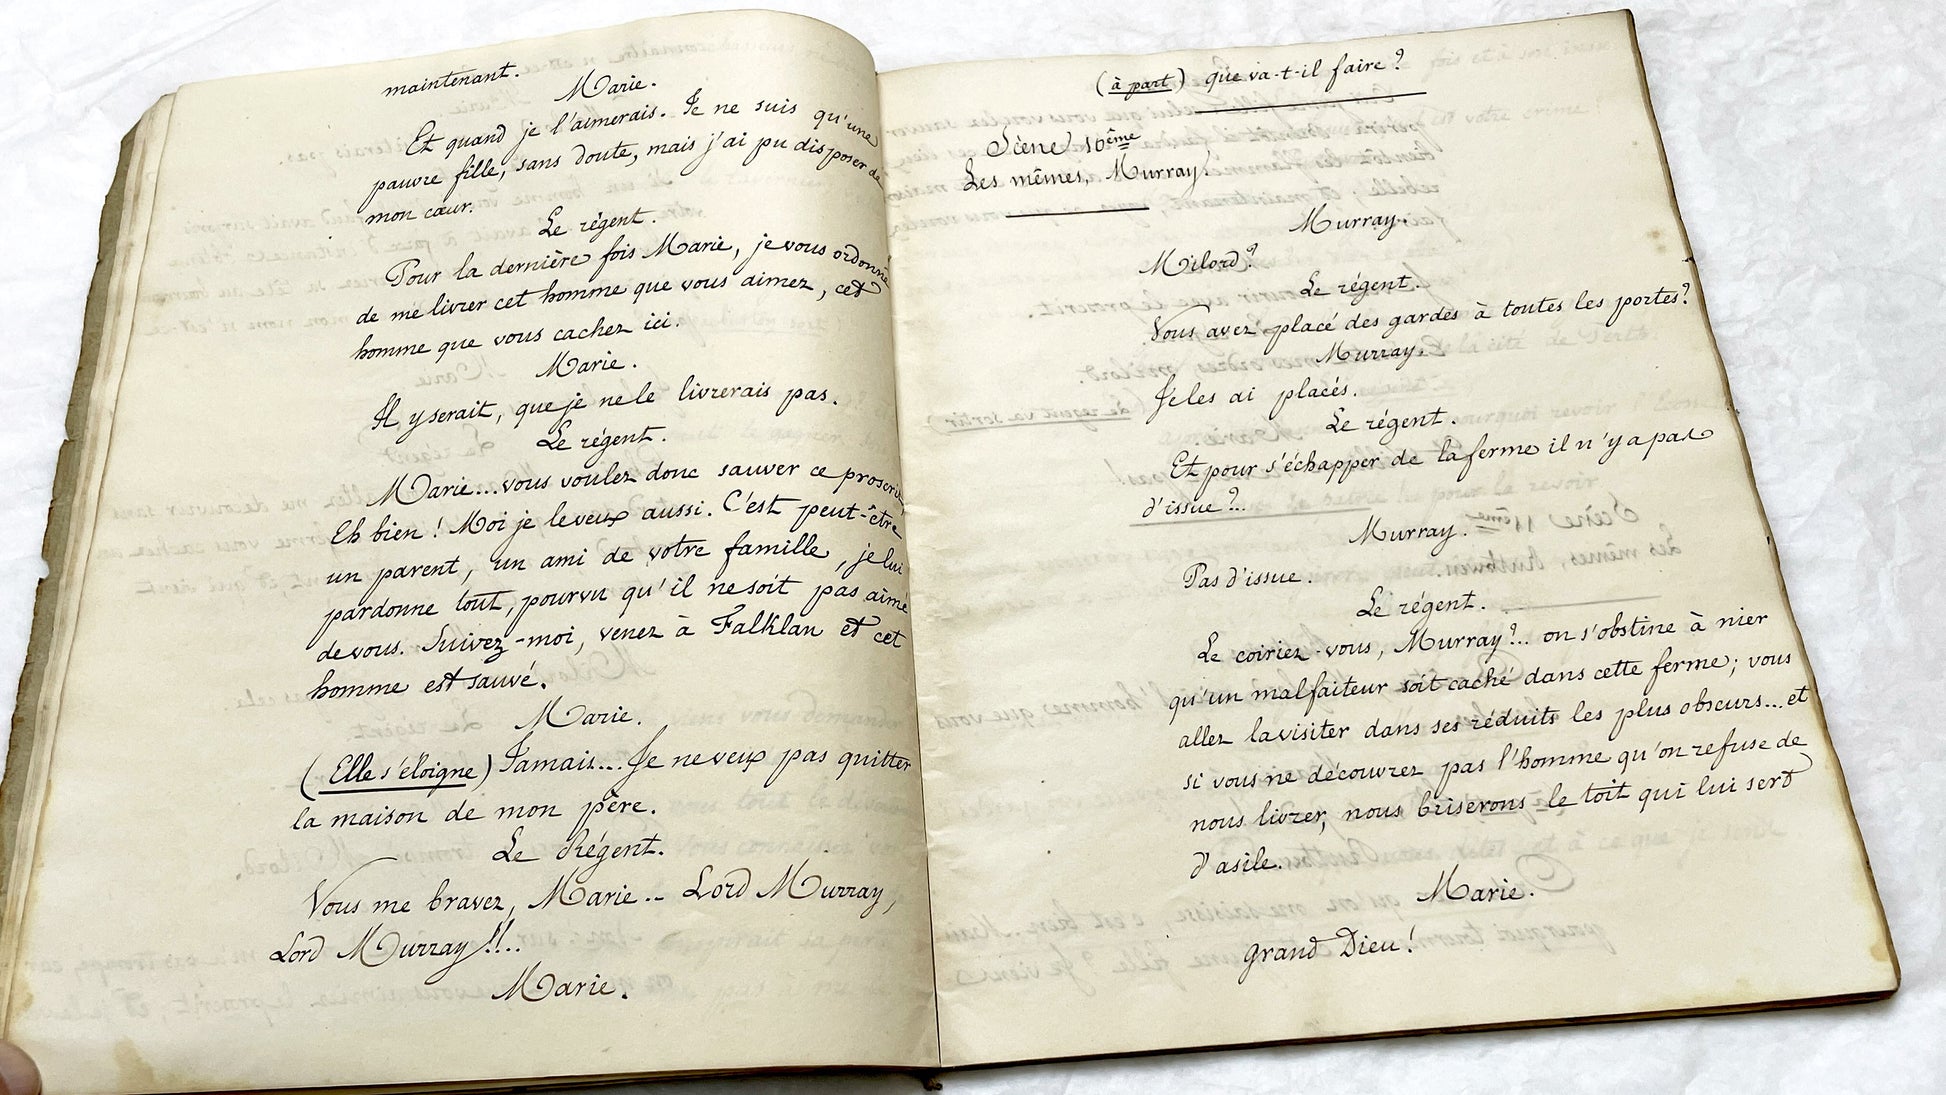 maintenant.
Marie.
Et quand je l'aimerais. Je ne suis qu'une
pauvre fille, sans doute, mais j'ai pu disposer de
mon cœur.
Le régent.
Pour la dernière fois Marie, je vous ordonne
de me livrer cet homme que vous aimez, cet
homme que vous cachez ici.
Marie.
Il y serait, que je ne le livrerais pas.
Le régent.
Marie... vous voulez donc sauver ce proscrit,
Eh bien! Moi je le veux aussi. C'est peut-être
un parent, un ami de votre famille, je lui
pardonne tout, pourvu qu'il ne soit pas aimé
de vous. Suivez-moi, venez à Falklan et cet
homme est sauvé.
Marie.
(Elle s'éloigne) Jamais... Je ne veux pas quitter
la maison de mon père.
Le Régent.
Vous me bravez, Marie.. Lord Murray,
Lord Murray!!..
Marie.
(à part) que va-t-il faire?
Scène 10ème
Les mêmes, Murray!
Murray.
Milord?
Le régent.
Vous avez placé des gardes à toutes les portes?
Murray.
Je les ai placés.
Le régent.
Et pour s'échapper de la ferme il n'y a pas
d'issue?..
Murray.
Pas d'issue.
Le régent.
Le coiriez-vous, Murray?... on s'obstine à nier
qu'un malfaiteur soit caché dans cette ferme; vous
allez la visiter dans ses réduits les plus obscurs... et
si vous ne découvrez pas l'homme qu'on refuse de
nous livrer, nous briserons le toit qui lui sert
d'asile.
Marie.
Grand Dieu!